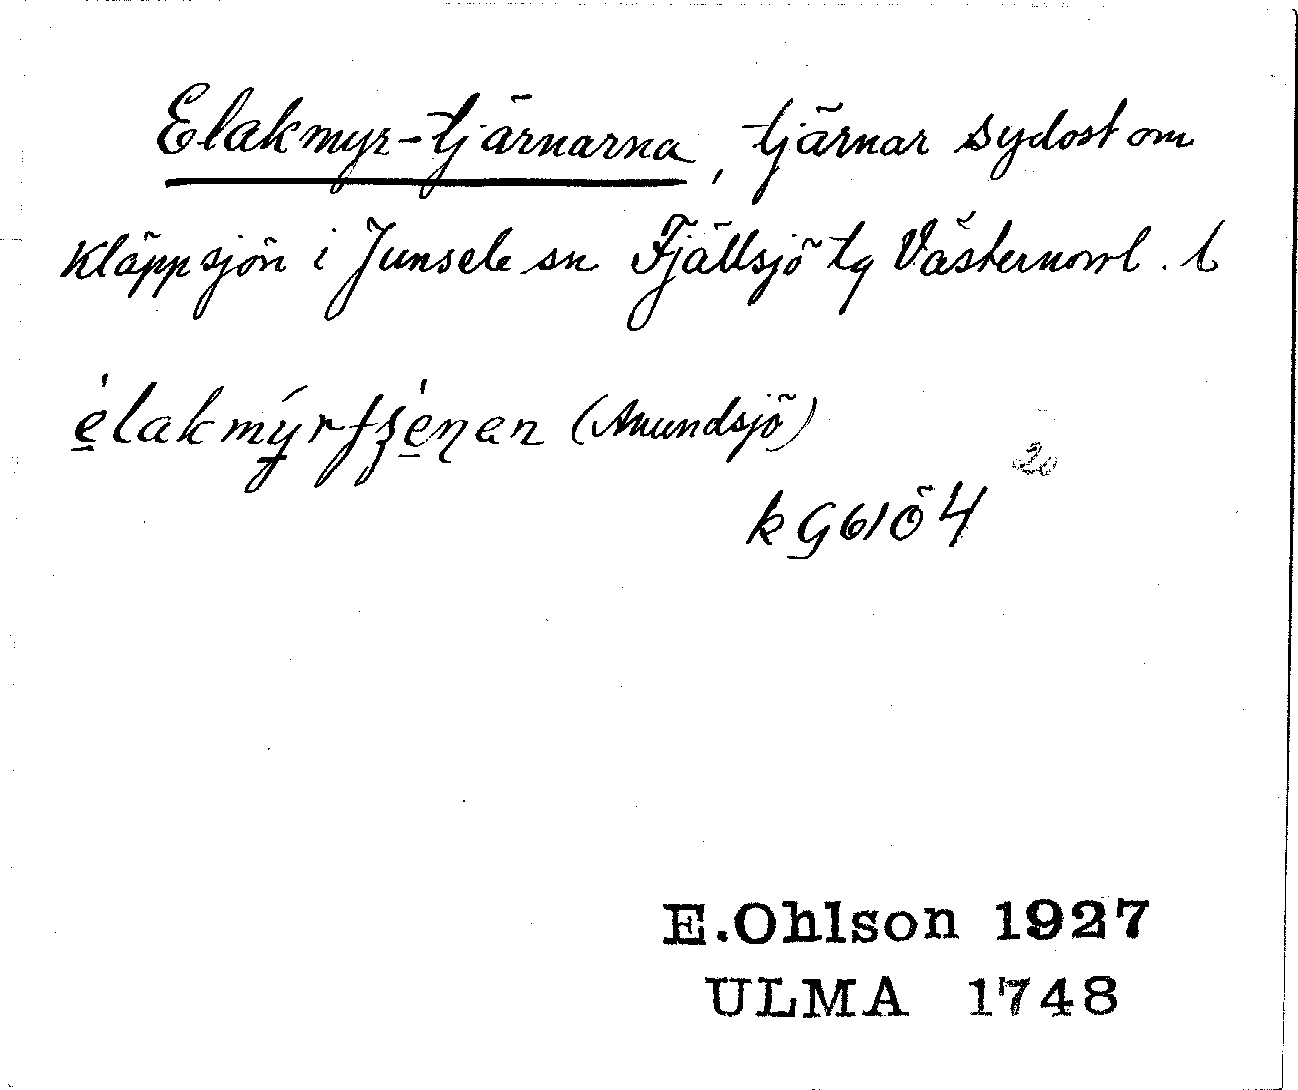 Elakmyr-tjärnarna, tjärnar sydost om
Kläppsjön i Junsele sn Fjällsjö tg Västernorrl. l
(Anundsjö)
20
k G61Ö4
E.Ohlson 1927
ULMA 1748